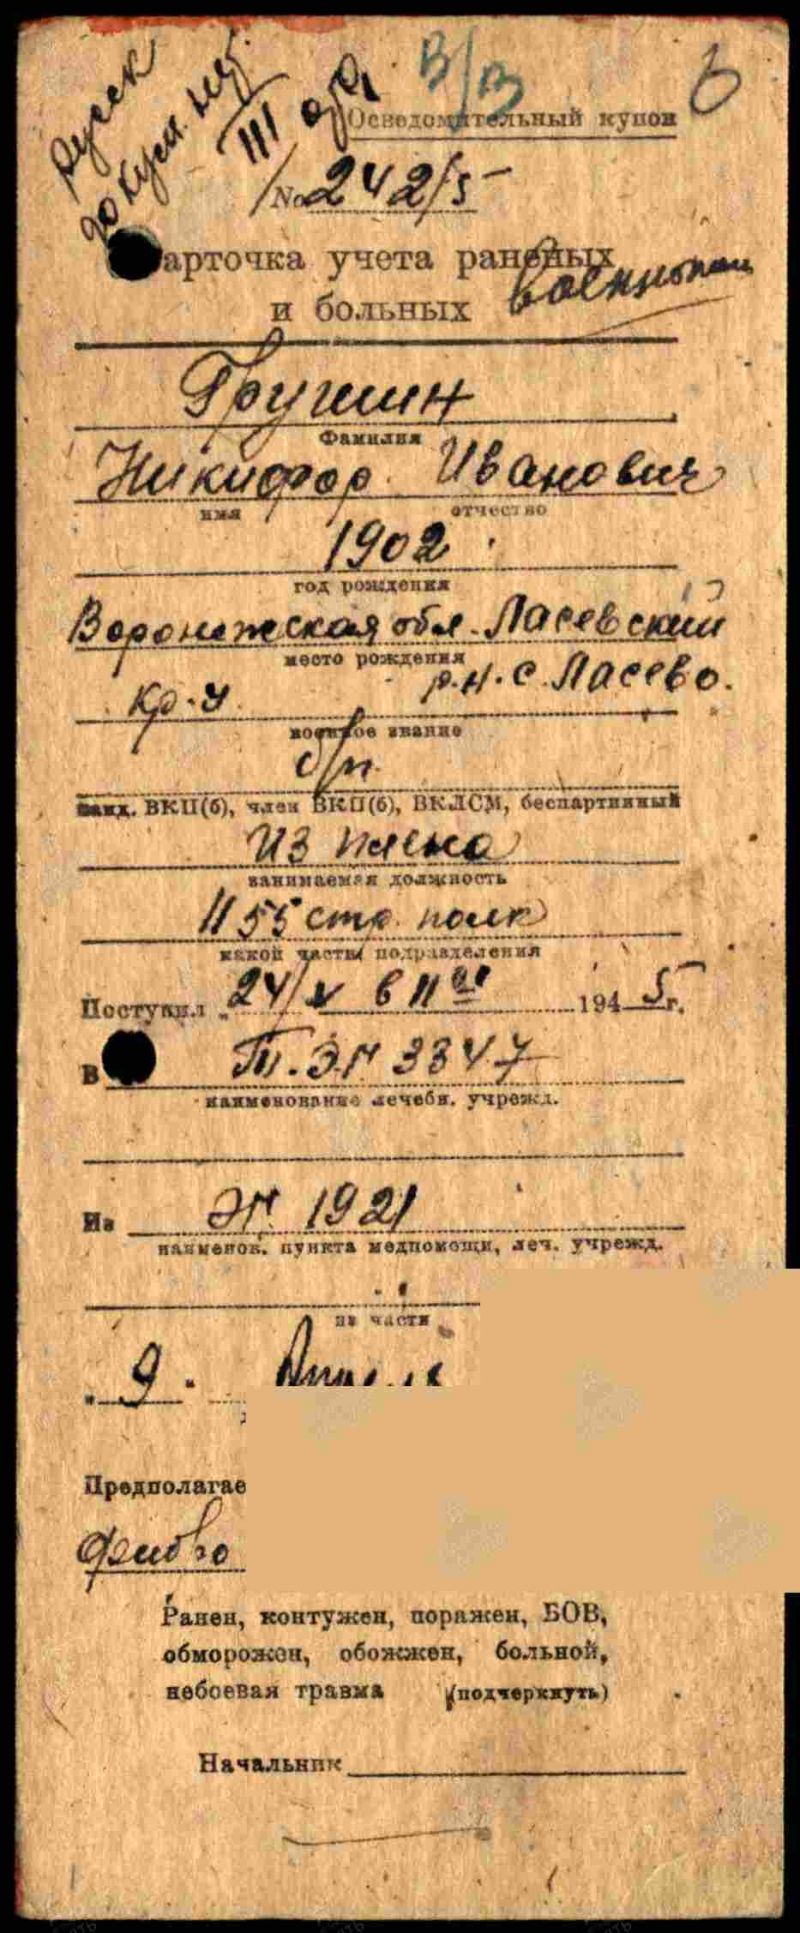 В/В
Осведомительный купон
III
№ 242/5
Карточка учета раненых
и больных
Грушин
Фамилия
Никифор Иванович
имя отчество
1902
год рождения
Воронежская обл. Ласевский
место рождения
р.н. с. Ласево.
кр-ц
военное звание
б/п.
канд. ВКП(б), член ВКП(б), ВКЛСМ, беспартийный
Из плена
занимаемая должность
1155 стр. полк
какой части подразделения
Поступил „24/V в 11 1945г.
В Т.ЭГ 3347
наименование лечебн. учрежд.
Из ЭГ 1921
наименов. пункта медпомощи, леч. учрежд.
из части
„9"
Предполагае
Ранен, контужен, поражен, БОВ,
обморожен, обожжен, больной,
небоевая травма (подчеркнуть)
Начальник